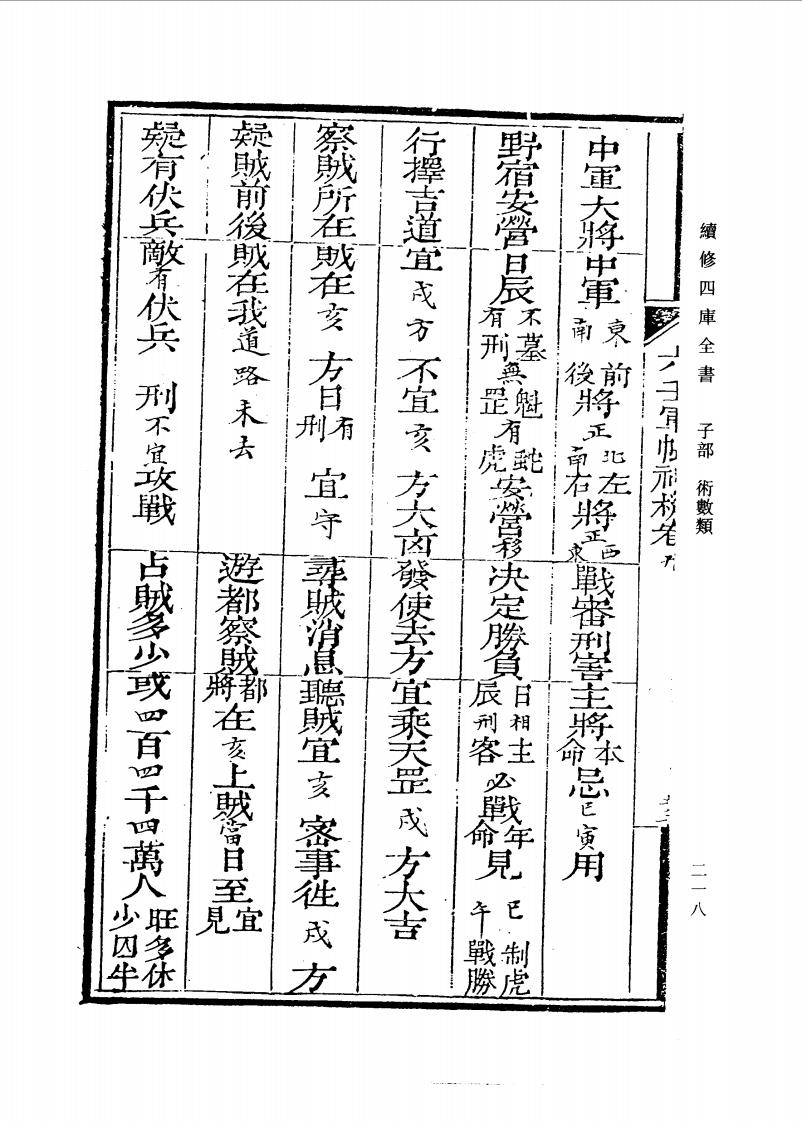 續修四庫全書 子部 術數類
二一八
六壬軍帳神機卷
中軍大將中軍東南前後將正北南左右將正西東戰審刑害主將本命忌巳寅用
野宿安營日辰不墓有刑魁罡無虵虎有安營移決定勝負日辰相刑主客必戰年命見巳午制虎戰勝
行擇吉道宜戌方不宜亥方大凶發使去方宜乘天罡戌方大吉
察賊所在賊在亥方日有刑宜守尋賊消息聽賊宜亥密事徃戌方
疑賊前後賊在我道路未去遊都察賊都將在亥上賊當日至宜見
疑有伏兵敵有伏兵刑不宜攻戰占賊多少或四百四千四萬人旺多休少囚半